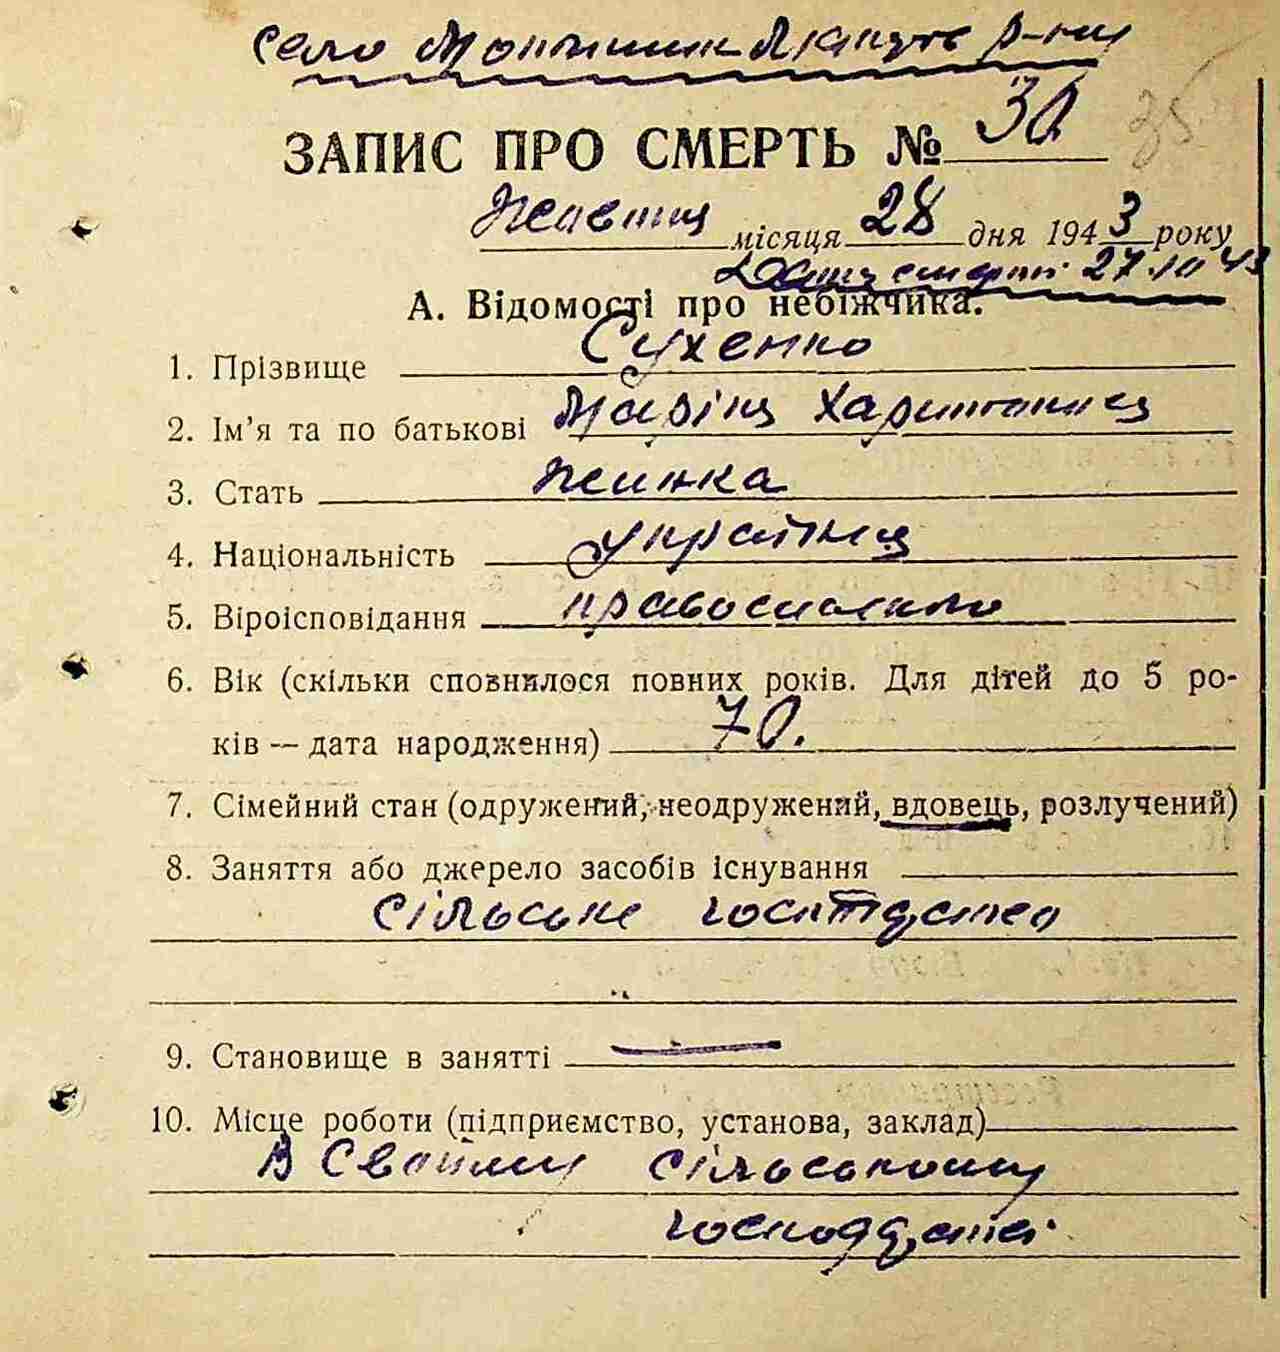 село р-ну
ЗАПИС ПРО СМЕРТЬ № 30 35
Жовтня місяця 28 дня 1943 року
смерти 27.10 43
А. Відомості про небіжчика.
1. Прізвище Сухенко
2. Ім'я та по батькові Марія Харитонівна
3. Стать жинка
4. Національність українка
5. Віроісповідання православна
6. Вік (скільки сповнилося повних років. Для дітей до 5 ро-
ків — дата народження) 70.
7. Сімейний стан (одружений, неодружений, вдовець, розлучений)
8. Заняття або джерело засобів існування
сільське
9. Становище в занятті —
10. Місце роботи (підприємство, установа, заклад)
В своїму сільському